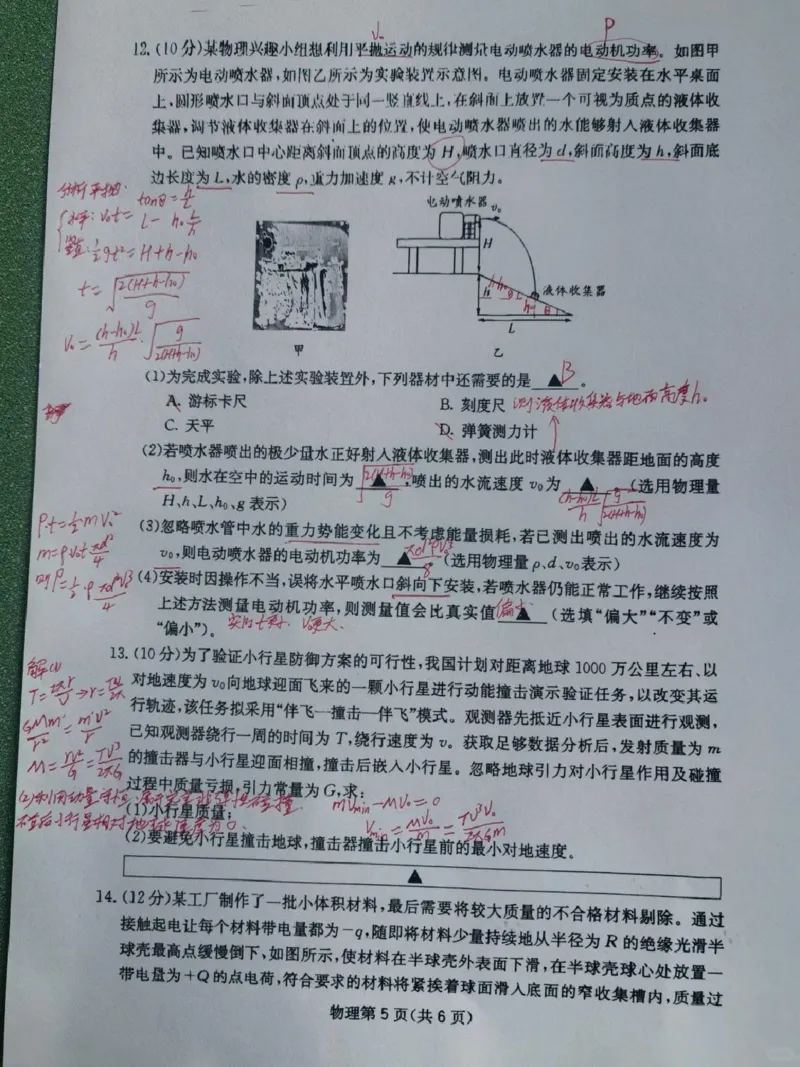 12.(10分)某物理兴趣小组想利用平抛运动的规律测量电动喷水器的电动机功率。如图甲
所示为电动喷水器,如图乙所示为实验装置示意图。电动喷水器固定安装在水平桌面
上,圆形喷水口与斜面顶点处于同一竖直线上,在斜面上放置一个可视为质点的液体收
集器,调节液体收集器在斜面上的位置,使电动喷水器喷出的水能够射入液体收集器
中。已知喷水口中心距离斜面顶点的高度为H,喷水口直径为d,斜面高度为h,斜面底
边长度为L,水的密度ρ,重力加速度g,不计空气阻力。
v₀
P
tanθ=h/L
水平:v₀t=L-h₀L/h
竖直:½gt²=H+h-h₀
t=√(2(H+h-h₀)/g)
v₀=(h-h₀)L/h·√(g/2(H+h-h₀))
电动喷水器
v₀
H
h
h-h₀
液体收集器
h₀
θ
L
甲
乙
(1)为完成实验,除上述实验装置外,下列器材中还需要的是▲。
B
A. 游标卡尺
B. 刻度尺
测液体收集器与地面高度h₀
C. 天平
D. 弹簧测力计
(2)若喷水器喷出的极少量水正好射入液体收集器,测出此时液体收集器距地面的高度
h₀,则水在空中的运动时间为▲,喷出的水流速度v₀为▲(选用物理量
√(2(H+h-h₀)/g)
(h-h₀)L/h √(g/2(H+h-h₀))
H、h、L、h₀、g表示)
(3)忽略喷水管中水的重力势能变化且不考虑能量损耗,若已测出喷出的水流速度为
v₀,则电动喷水器的电动机功率为▲(选用物理量ρ、d、v₀表示)
πd²ρv₀³/8
P·t=½mv₀²
m=ρv₀t πd²/4
P=½ρ πd²v₀³/4
(4)安装时因操作不当,误将水平喷水口斜向下安装,若喷水器仍能正常工作,继续按照
上述方法测量电动机功率,则测量值会比真实值▲(选填“偏大”“不变”或
偏大
“偏小”)。
13.(10分)为了验证小行星防御方案的可行性,我国计划对距离地球1000万公里左右、以
对地速度为v₀向地球迎面飞来的一颗小行星进行动能撞击演示验证任务,以改变其运
行轨迹,该任务拟采用“伴飞—撞击—伴飞”模式。观测器先抵近小行星表面进行观测,
已知观测器绕行一周的时间为T,绕行速度为v。获取足够数据分析后,发射质量为m
的撞击器与小行星迎面相撞,撞击后嵌入小行星。忽略地球引力对小行星作用及碰撞
过程中质量亏损,引力常量为G,求:
(1)小行星质量;
(2)要避免小行星撞击地球,撞击器撞击小行星前的最小对地速度。
解(1)
T=2πr/v→r=Tv/2π
GMm'/r²=m'v²/r
M=rv²/G=Tv³/2πG
mvmin-Mv₀=0
vmin=Mv₀/m=Tv³v₀/2πGm
▲
14.(12分)某工厂制作了一批小体积材料,最后需要将较大质量的不合格材料剔除。通过
接触起电让每个材料带电量都为-q,随即将材料少量持续地从半径为R的绝缘光滑半
球壳最高点缓慢倒下,如图所示,使材料在半球壳外表面下滑,在半球壳球心处放置一
带电量为+Q的点电荷,符合要求的材料将紧挨着球面滑入底面的窄收集槽内,质量过
物理第5页(共6页)